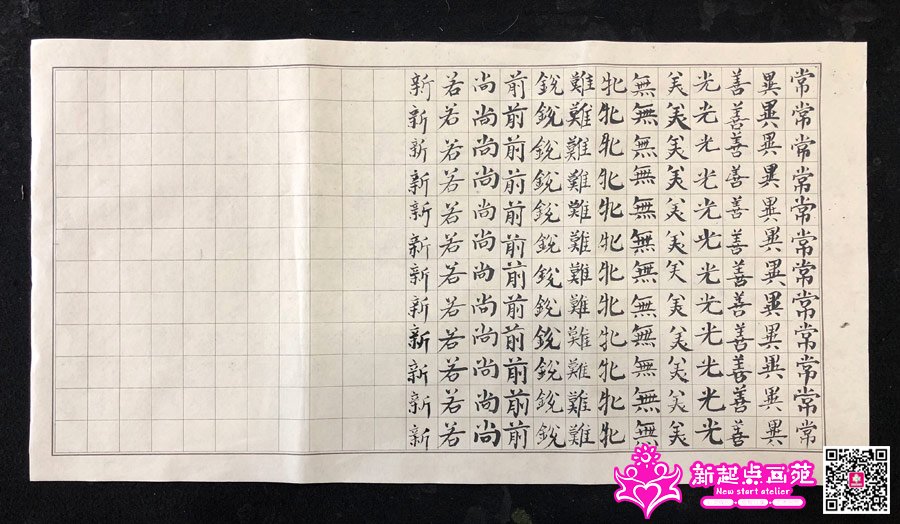 常常常常常常常常常常常常
異異異異異異異異異異異異
善善善善善善善善善善善善
光光光光光光光光光光光光
美美美美美美美美美美美美
無無無無無無無無無無無無
牝牝牝牝牝牝牝牝牝牝牝牝
難難難難難難難難難難難難
銳銳銳銳銳銳銳銳銳銳銳銳
前前前前前前前前前前前前
尚尚尚尚尚尚尚尚尚尚尚尚
若若若若若若若若若若若若
新新新新新新新新新新新新
新起点画苑
New start atelier